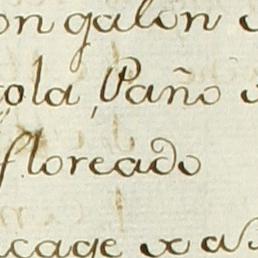 on galon
ola, Paño
floreado
cage